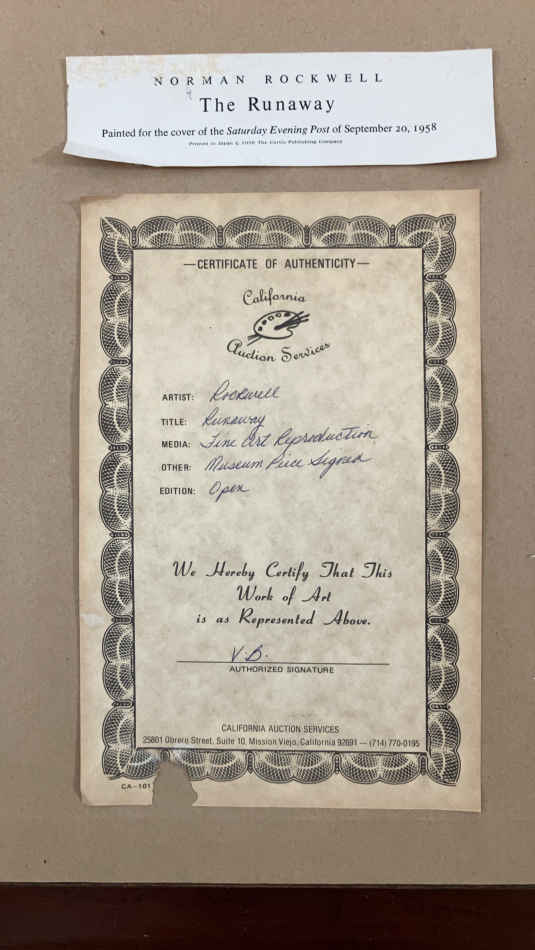 NORMAN ROCKWELL
The Runaway
Painted for the cover of the Saturday Evening Post of September 20, 1958
Printed in 1958 The Curtis Publishing Company
—CERTIFICATE OF AUTHENTICITY—
California
Auction Services
ARTIST: Rockwell
TITLE: Runaway
MEDIA: Fine Art Reproduction
OTHER: Museum Piece Signed
EDITION: Open
We Hereby Certify That This
Work of Art
is as Represented Above.
V.B.
AUTHORIZED SIGNATURE
CALIFORNIA AUCTION SERVICES
25801 Obrero Street, Suite 10, Mission Viejo, California 92691 — (714) 770-0195
CA-101